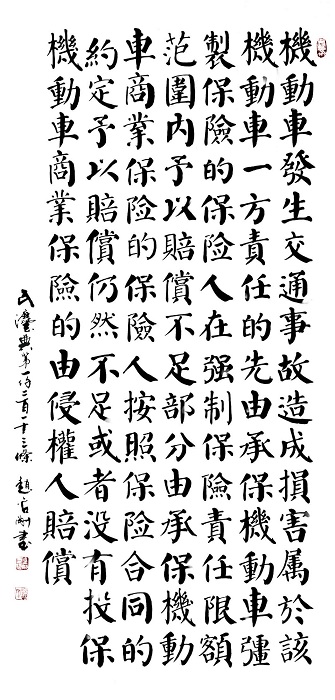 機動車發生交通事故造成損害属於該
機動車一方責任的先由承保機動車彊
製保險的保险人在强制保險責任限額
范圍内予以賠償不足部分由承保機動
車商業保险的保險人按照保险合同的
約定予以賠償仍然不足或者没有投保
機動車商業保險的由侵權人賠償
民灋典第一仟二百一十三條 趙 剛書